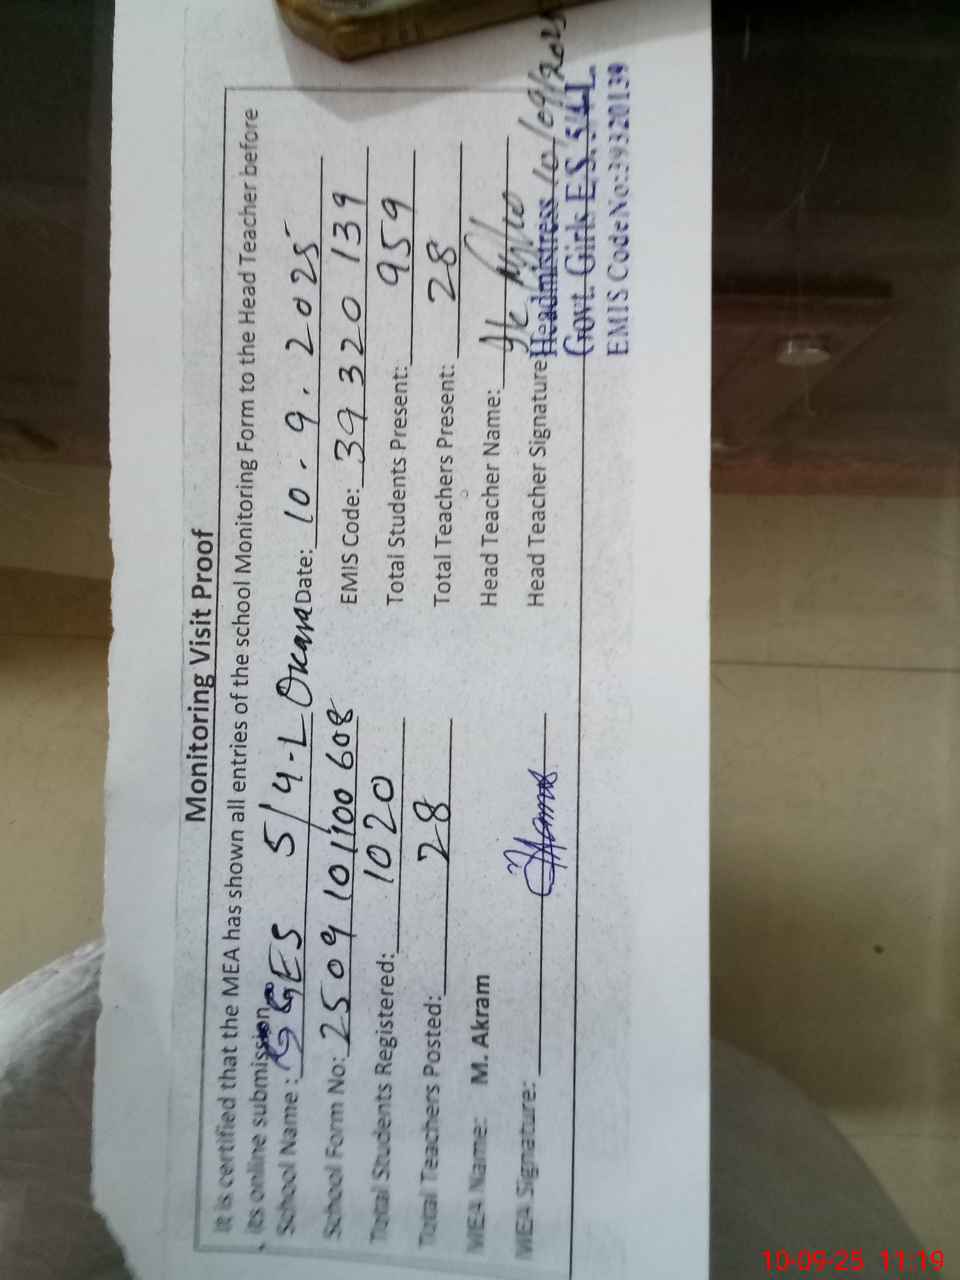 Monitoring Visit Proof
It is certified that the MEA has shown all entries of the school Monitoring Form to the Head Teacher before
its online submission.
School Name : GGES 5/4-L Okara Date: 10.9.2025
School Form No: 250910100608 EMIS Code: 39320139
Total Students Registered: 1020 Total Students Present: 959
Total Teachers Posted: 28 Total Teachers Present: 28
MEA Name: M. Akram Head Teacher Name:
MEA Signature: Head Teacher Signature
Headmistress 10/09/2025
Govt. Girls E.S. 5/4-L.
EMIS Code No:39320139
10-09-25 11:19